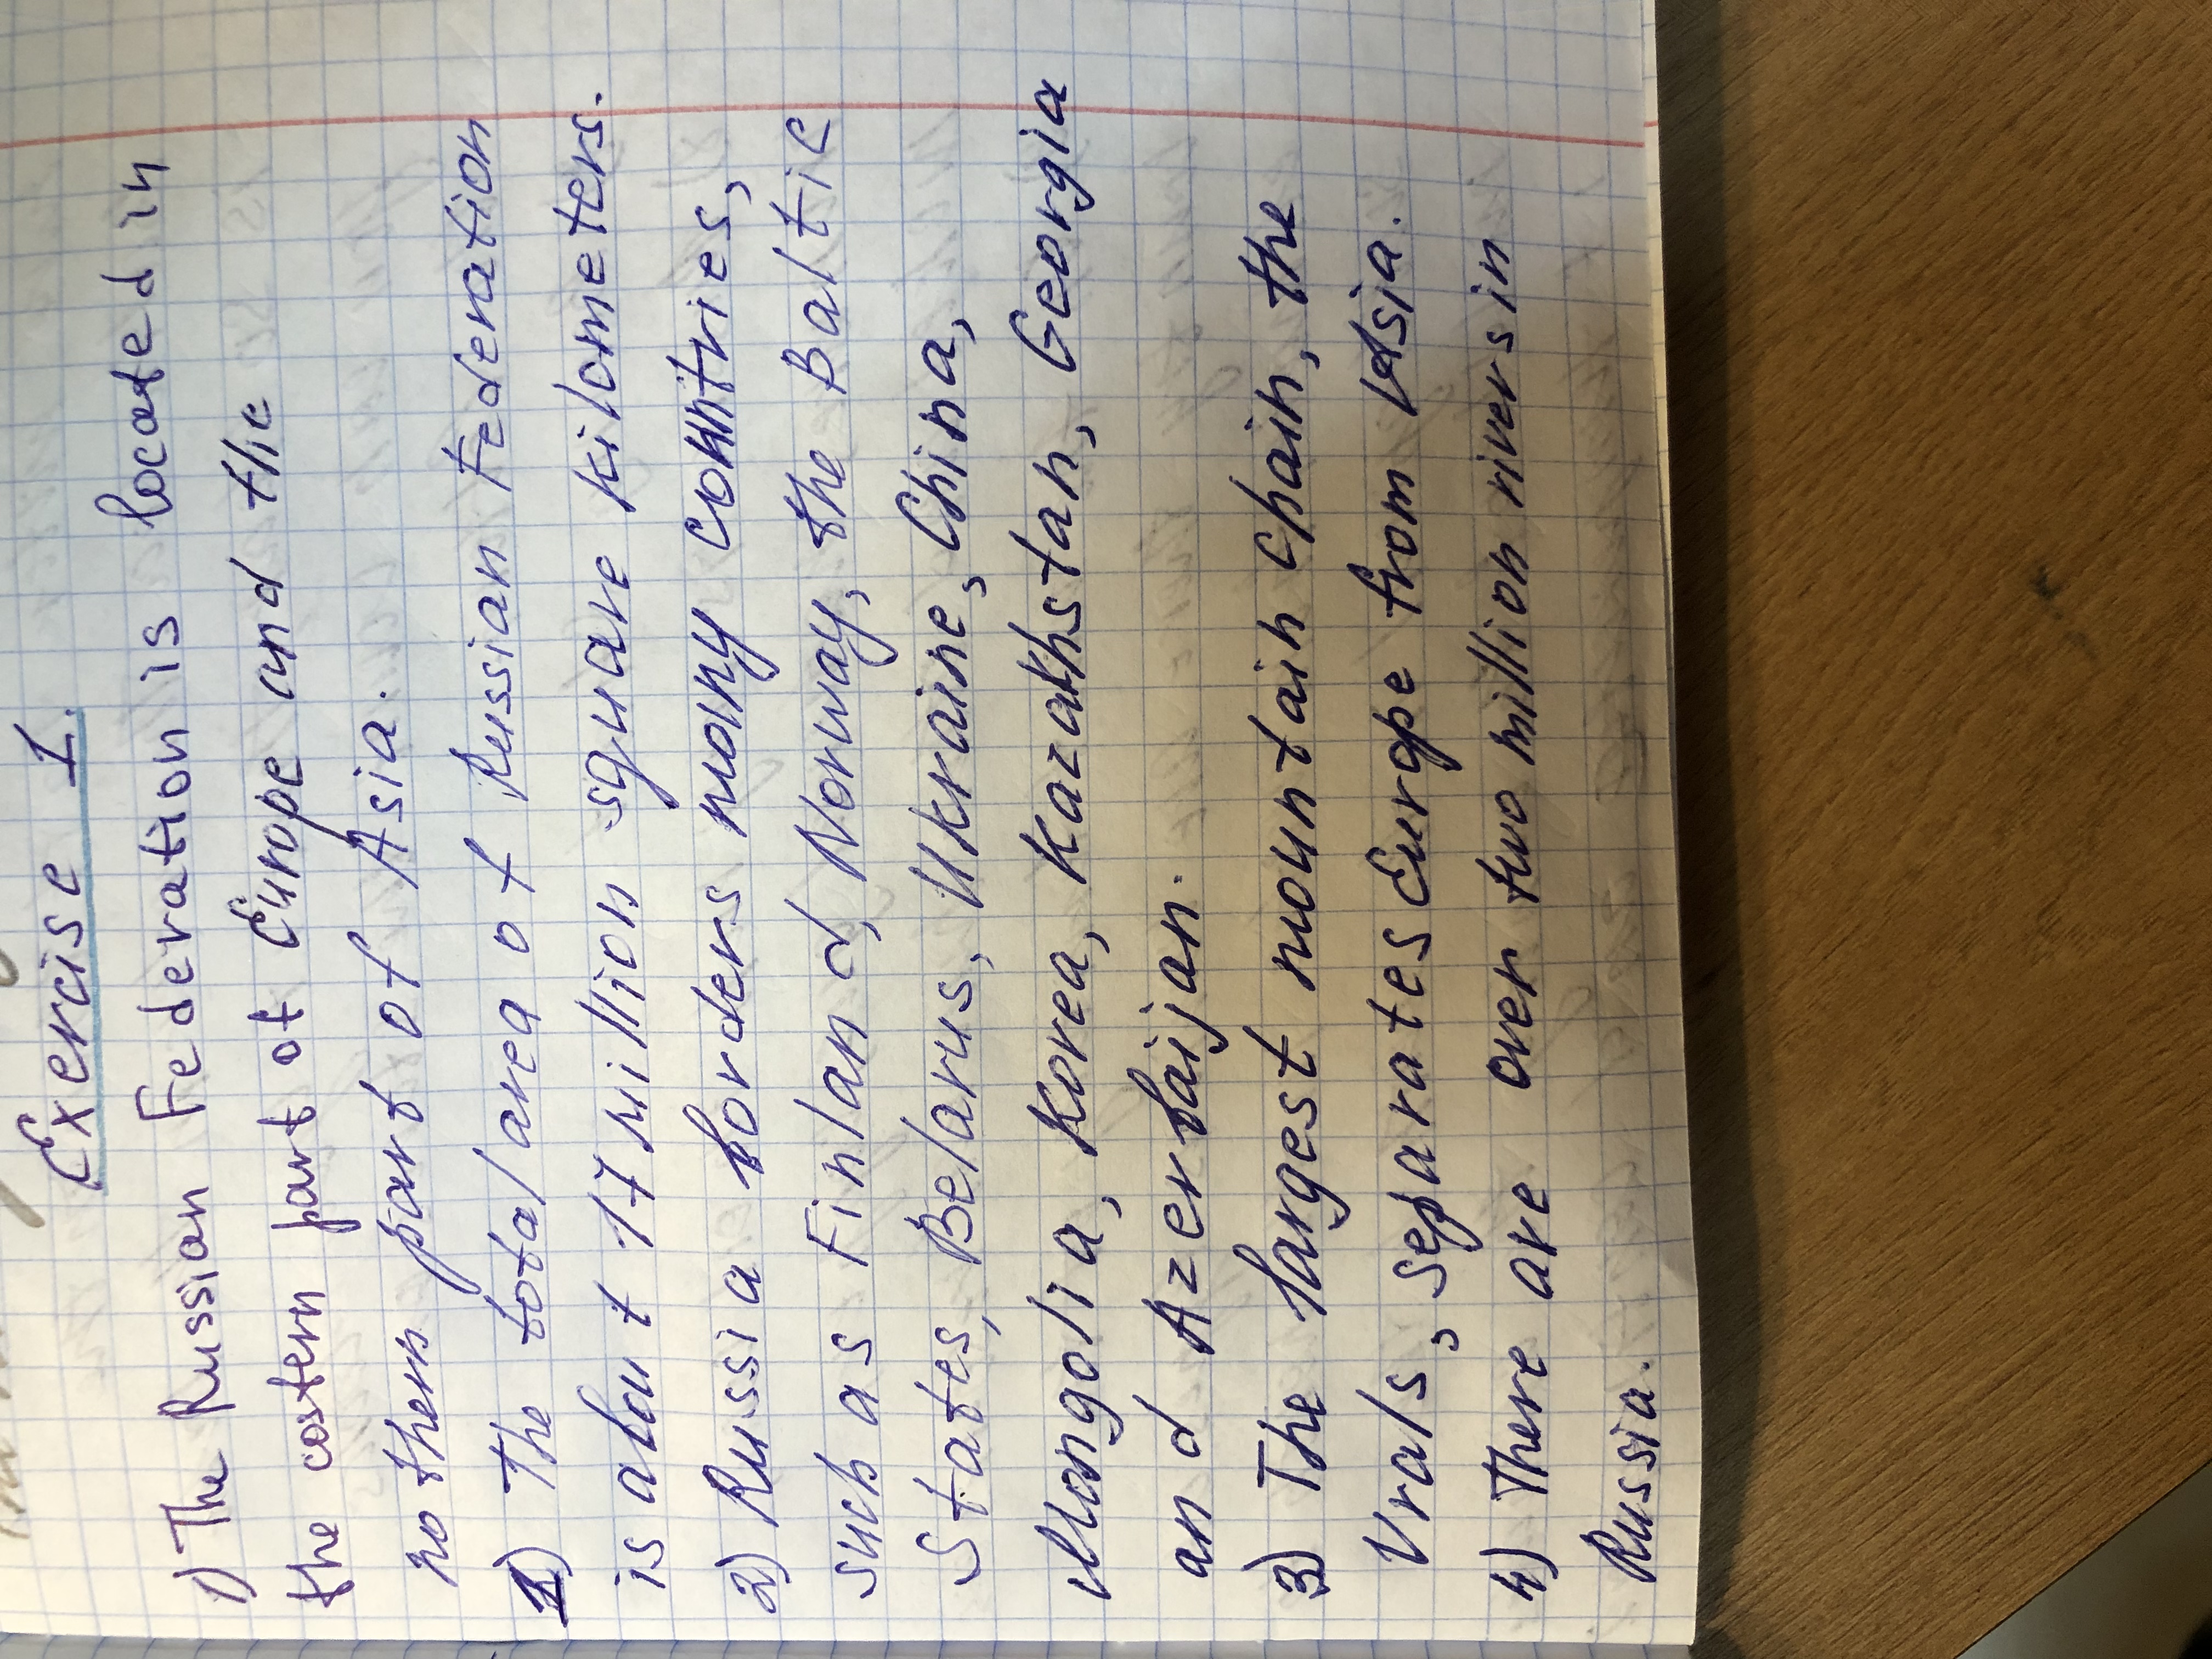 Exercise 1.
1) The Russian Federation is located in
the eastern part of Europe and the
nothern part of Asia.
1) The total area of Russian Federation
is about 17 million square kilometers.
2) Russia borders many countries,
such as Finland, Norway, the Baltic
States, Belarus, Ukraine, China,
Mongolia, Korea, Kazakhstan, Georgia
and Azerbaijan.
3) The largest mountain chain, the
Urals, separates Europe from Asia.
4) There are over two million rivers in
Russia.